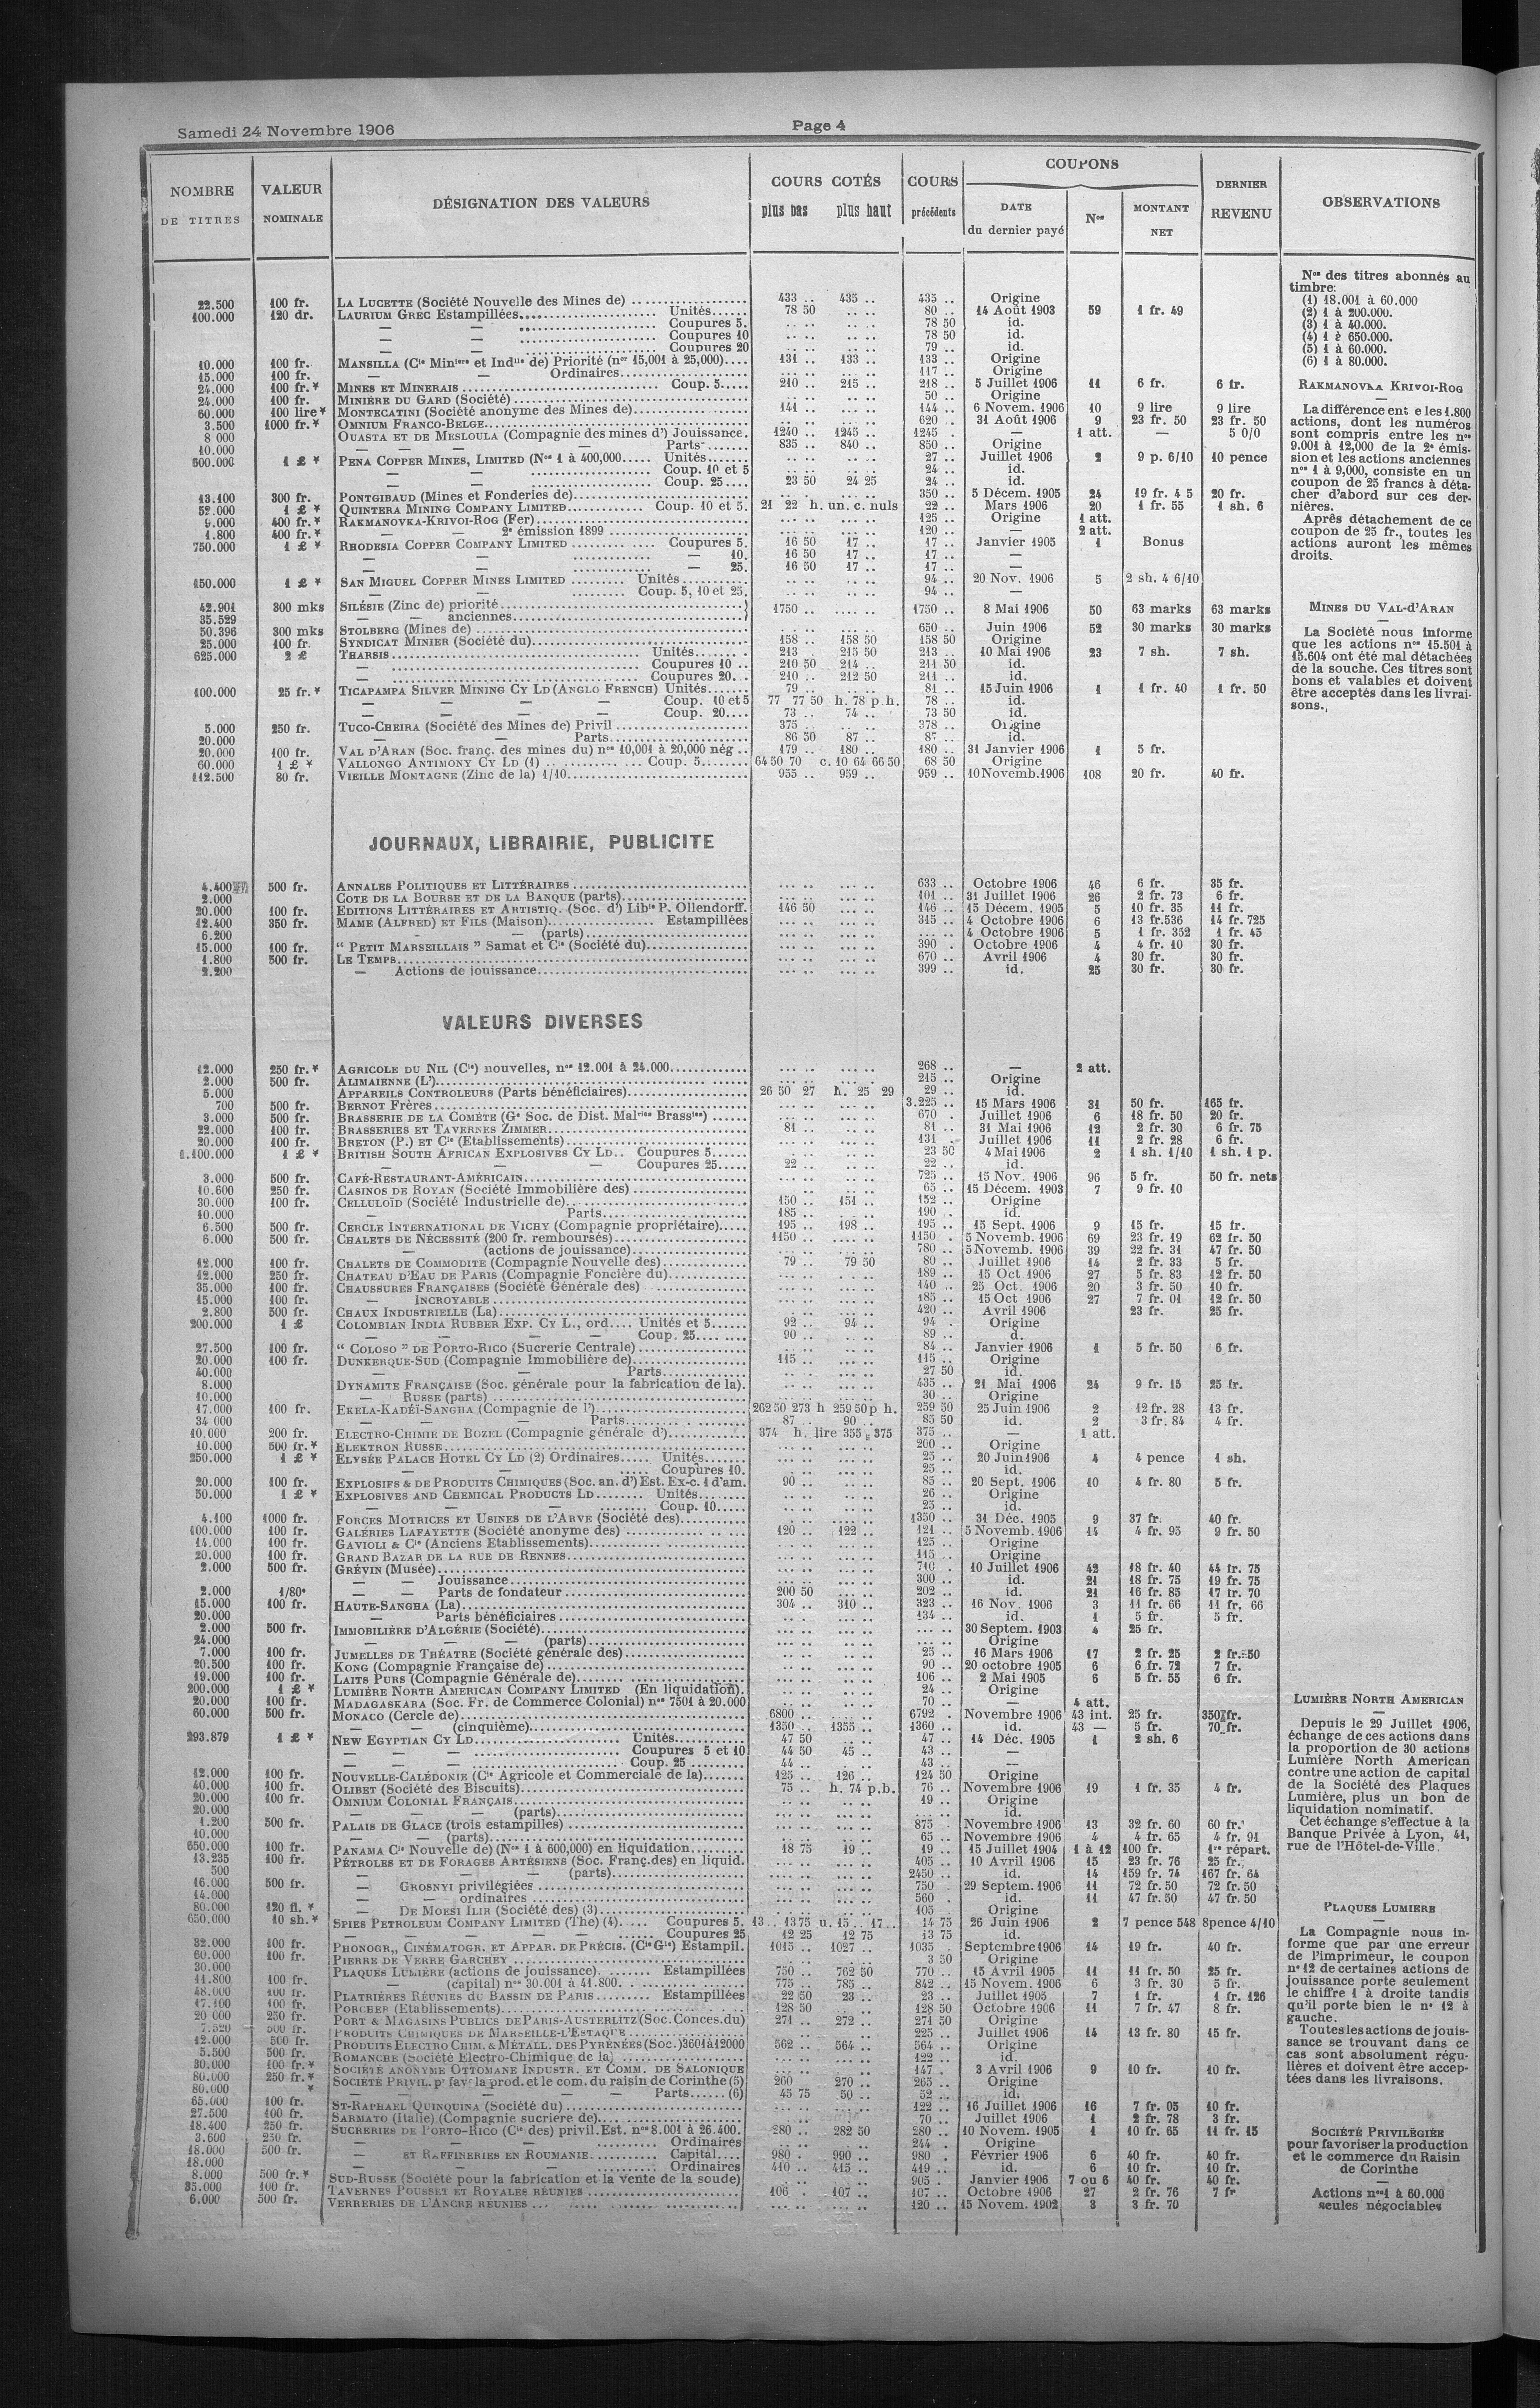 Samedi 24 Novembre 1906
Page 4
NOMBRE DE TITRES | VALEUR NOMINALE | DÉSIGNATION DES VALEURS | COURS COTÉS plus bas plus haut | COURS précédents | COUPONS DATE du dernier payé | Nos | MONTANT NET | DERNIER REVENU | OBSERVATIONS
22.500 100 fr. LA LUCETTE (Société Nouvelle des Mines de) 433 .. 435 .. 435 .. Origine
100.000 120 dr. LAURIUM GREC Estampillées Unités 78 50 .. .. 80 .. 14 Août 1903 59 1 fr. 49
— — Coupures 5. 78 50 id.
— — Coupures 10 78 50 id.
— — Coupures 20 79 .. id.
10.000 100 fr. MANSILLA (Cie Minière et Indlle de) Priorité (nos 15,001 à 25,000) 131 .. 133 .. 133 .. Origine
15.000 100 fr. — — Ordinaires 117 .. Origine
24.000 100 fr.* MINES ET MINERAIS Coup. 5 210 .. 215 .. 218 .. 5 Juillet 1906 11 6 fr. 6 fr.
24.000 100 fr. MINIÈRE DU GARD (Société) 50 .. Origine
60.000 100 lire* MONTECATINI (Société anonyme des Mines de) 141 .. 144 .. 6 Novem. 1906 10 9 lire 9 lire
3.500 1000 fr.* OMNIUM FRANCO-BELGE 620 .. 31 Août 1906 9 23 fr. 50 23 fr. 50
8 000 OUASTA ET DE MESLOULA (Compagnie des mines d') Jouissance. 1240 .. 1245 .. 1245 . — 1 att. — 5 0/0
10.000 — — — Parts 835 .. 840 .. 850 .. Origine
600.000 1 £ * PENA COPPER MINES, LIMITED (Nos 1 à 400,000) Unités 27 .. Juillet 1906 2 9 p. 6/10 10 pence
— — Coup. 10 et 5 24 .. id.
— — Coup. 25 23 50 24 25 24 .. id.
13.100 300 fr. PONTGIBAUD (Mines et Fonderies de) 350 .. 5 Décem. 1905 24 19 fr. 4 5 20 fr.
52.000 1 £ * QUINTERA MINING COMPANY LIMITED Coup. 10 et 5. 21 22 h. un. c. nuls 22 .. Mars 1906 20 1 fr. 55 1 sh. 6
9.000 400 fr.* RAKMANOVKA-KRIVOI-ROG (Fer) 125 .. Origine 1 att.
1.800 400 fr.* — — 2e émission 1899 120 .. 2 att.
750.000 1 £ * RHODESIA COPPER COMPANY LIMITED Coupures 5. 16 50 17 .. 17 .. Janvier 1905 1 Bonus
— — — 10. 16 50 17 .. 17 .. —
— — — 25. 16 50 17 .. 17 .. —
150.000 1 £ * SAN MIGUEL COPPER MINES LIMITED Unités 94 .. 20 Nov. 1906 5 2 sh. 4 6/10
— — Coup. 5, 10 et 25. 94 .. —
42.901 300 mks SILÉSIE (Zinc de) priorité 1750 .. 1750 .. 8 Mai 1906 50 63 marks 63 marks
35.529 — — anciennes
50.396 300 mks STOLBERG (Mines de) 650 .. Juin 1906 52 30 marks 30 marks
25.000 100 fr. SYNDICAT MINIER (Société du) 158 .. 158 50 158 50 Origine
625.000 2 £ THARSIS Unités 213 . 215 50 213 .. 10 Mai 1906 23 7 sh. 7 sh.
— Coupures 10 210 50 214 .. 211 50 id.
— Coupures 20 210 .. 212 50 211 .. id.
100.000 25 fr.* TICAPAMPA SILVER MINING CY LD (ANGLO FRENCH) Unités 79 .. 81 .. 15 Juin 1906 1 1 fr. 40 1 fr. 50
— — — — Coup. 10 et 5 77 77 50 h. 78 p. h. 78 .. id.
— — — — Coup. 20 73 .. 74 .. 73 50 id.
5.000 250 fr. TUCO-CHEIRA (Société des Mines de) Privil 375 .. 378 .. Origine
20.000 — — Parts 86 50 87 .. 87 .. id.
20.000 100 fr. VAL D'ARAN (Soc. franç. des mines du) nos 10,001 à 20,000 nég .. 179 .. 180 .. 180 .. 31 Janvier 1906 1 5 fr.
60.000 1 £ * VALLONGO ANTIMONY CY LD (1) Coup. 5 64 50 70 c. 10 64 66 50 68 50 Origine
112.500 80 fr. VIEILLE MONTAGNE (Zinc de la) 1/10 955 .. 959 .. 959 .. 10 Novemb. 1906 108 20 fr. 40 fr.
JOURNAUX, LIBRAIRIE, PUBLICITE
4.400 500 fr. ANNALES POLITIQUES ET LITTÉRAIRES 633 .. Octobre 1906 46 6 fr. 35 fr.
2.000 COTE DE LA BOURSE ET DE LA BANQUE (parts) 101 .. 31 Juillet 1906 26 2 fr. 73 6 fr.
20.000 100 fr. EDITIONS LITTÉRAIRES ET ARTISTIQ. (Soc. d') Libie P. Ollendorff. 146 50 146 .. 15 Décem. 1905 5 10 fr. 35 11 fr.
12.400 350 fr. MAME (ALFRED) ET FILS (Maison) Estampillées 315 .. 4 Octobre 1906 6 13 fr.536 14 fr. 725
6.200 — — (parts) 4 Octobre 1906 5 1 fr. 352 1 fr. 45
15.000 100 fr. “ PETIT MARSEILLAIS ” Samat et Cie (Société du) 390 . Octobre 1906 4 4 fr. 10 30 fr.
1.800 500 fr. LE TEMPS 670 .. Avril 1906 4 30 fr. 30 fr.
2.200 — Actions de jouissance 399 .. id. 25 30 fr. 30 fr.
VALEURS DIVERSES
12.000 250 fr.* AGRICOLE DU NIL (Cie) nouvelles, nos 12.001 à 24.000 268 .. — 2 att.
2.000 500 fr. ALIMAIENNE (L') 215 .. Origine
5.000 APPAREILS CONTROLEURS (Parts bénéficiaires) 26 50 27 h. 25 29 29 .. id.
700 500 fr. BERNOT FRÈRES 3.225 .. 15 Mars 1906 31 50 fr. 165 fr.
3.000 500 fr. BRASSERIE DE LA COMÈTE (Ge Soc. de Dist. Malries Brassies) 670 . Juillet 1906 6 18 fr. 50 20 fr.
22.000 100 fr. BRASSERIES ET TAVERNES ZIMMER 81 .. 81 .. 31 Mai 1906 12 2 fr. 30 6 fr. 75
20.000 100 fr. BRETON (P.) ET Cie (Etablissements) 131 . Juillet 1906 11 2 fr. 28 6 fr.
1.100.000 1 £ * BRITISH SOUTH AFRICAN EXPLOSIVES CY LD Coupures 5 23 50 4 Mai 1906 2 1 sh. 1/10 1 sh. 1 p.
— — — Coupures 25 22 .. 22 .. id.
3.000 500 fr. CAFÉ-RESTAURANT-AMÉRICAIN 725 .. 15 Nov. 1906 96 5 fr. 50 fr. nets
10.600 250 fr. CASINOS DE ROYAN (Société Immobilière des) 65 .. 15 Décem. 1903 7 9 fr. 10
30.000 100 fr. CELLULOÏD (Société Industrielle de) 150 .. 151 .. 152 .. Origine
10.000 — Parts 185 .. 190 . id.
6.500 500 fr. CERCLE INTERNATIONAL DE VICHY (Compagnie propriétaire) 195 .. 198 .. 195 .. 15 Sept. 1906 9 15 fr. 15 fr.
6.000 500 fr. CHALETS DE NÉCESSITÉ (200 fr. remboursés) 1150 .. 1150 . 5 Novemb. 1906 69 23 fr. 19 62 fr. 50
— (actions de jouissance) 780 .. 5 Novemb. 1906 39 22 fr. 31 47 fr. 50
12.000 100 fr. CHALETS DE COMMODITE (Compagnie Nouvelle des) 79 .. 79 50 80 .. Juillet 1906 14 2 fr. 33 5 fr.
12.000 250 fr. CHATEAU D'EAU DE PARIS (Compagnie Foncière du) 189 .. 15 Oct 1906 27 5 fr. 83 12 fr. 50
35.000 100 fr. CHAUSSURES FRANÇAISES (Société Générale des) 140 .. 25 Oct. 1906 20 3 fr. 50 10 fr.
15.000 100 fr. — INCROYABLE 185 .. 15 Oct 1906 27 7 fr. 01 12 fr. 50
2.800 500 fr. CHAUX INDUSTRIELLE (La) 420 .. Avril 1906 23 fr. 25 fr.
200.000 1 £ COLOMBIAN INDIA RUBBER EXP. CY L., ord. Unités et 5 92 .. 94 .. 94 . Origine
— — — — Coup. 25 90 .. 89 .. d.
27.500 100 fr. “ COLOSO ” DE PORTO-RICO (Sucrerie Centrale) 84 .. Janvier 1906 1 5 fr. 50 6 fr.
20.000 100 fr. DUNKERQUE-SUD (Compagnie Immobilière de) 115 .. 115 .. Origine
40.000 — — Parts 27 50 id.
8.000 DYNAMITE FRANÇAISE (Soc. générale pour la fabrication de la). 435 .. 21 Mai 1906 24 9 fr. 15 25 fr.
10.000 — RUSSE (parts) 30 .. Origine
17.000 100 fr. EKELA-KADÉÏ-SANGHA (Compagnie de l') 262 50 273 h 259 50 p h. 259 50 25 Juin 1906 2 12 fr. 28 13 fr.
34 000 — — — Parts 87 .. 90 .. 85 50 id. 2 3 fr. 84 4 fr.
10.000 200 fr. ELECTRO-CHIMIE DE BOZEL (Compagnie générale d') 374 h. lire 355 = 375 375 .. — 1 att.
10.000 500 fr.* ELEKTRON RUSSE 200 .. Origine
250.000 1 £ * ELYSÉE PALACE HOTEL CY LD (2) Ordinaires Unités 25 .. 20 Juin 1906 4 4 pence 1 sh.
— — Coupures 10. 25 .. id.
20.000 100 fr. EXPLOSIFS & DE PRODUITS CHIMIQUES (Soc. an. d') Est. Ex-c. 1 d'am. 90 .. 85 .. 20 Sept. 1906 10 4 fr. 80 5 fr.
50.000 1 £ * EXPLOSIVES AND CHEMICAL PRODUCTS LD Unités 26 .. Origine
— — — Coup. 10 25 .. id.
4.100 1000 fr. FORCES MOTRICES ET USINES DE L'ARVE (Société des) 1350 .. 31 Déc. 1905 9 37 fr. 40 fr.
100.000 100 fr. GALERIES LAFAYETTE (Société anonyme des) 120 .. 122 .. 121 .. 5 Novemb. 1906 14 4 fr. 95 9 fr. 50
14.000 100 fr. GAVIOLI & Cie (Anciens Etablissements) 125 .. Origine
20.000 100 fr. GRAND BAZAR DE LA RUE DE RENNES 115 .. Origine
2.000 500 fr. GRÉVIN (Musée) 710 . 10 Juillet 1906 42 18 fr. 40 44 fr. 75
— — Jouissance 300 .. id. 21 18 fr. 75 19 fr. 75
2.000 1/80e — — Parts de fondateur 200 50 202 .. id. 21 16 fr. 85 17 fr. 70
15.000 100 fr. HAUTE-SANGHA (La) 304 .. 310 .. 323 .. 16 Nov. 1906 3 11 fr. 66 11 fr. 66
20.000 — Parts bénéficiaires 134 .. id. 1 5 fr. 5 fr.
2.000 500 fr. IMMOBILIÈRE D'ALGÉRIE (Société) 30 Septem. 1903 4 25 fr.
24.000 — — — (parts) Origine
7.000 100 fr. JUMELLES DE THÉATRE (Société générale des) 25 .. 16 Mars 1906 17 2 fr. 25 2 fr. 50
20.500 100 fr. KONG (Compagnie Française de) 90 .. 20 octobre 1905 6 6 fr. 72 7 fr.
19.000 100 fr. LAITS PURS (Compagnie Générale de) 106 .. 2 Mai 1905 6 5 fr. 55 6 fr.
200.000 1 £ * LUMIÈRE NORTH AMERICAN COMPANY LIMITED (En liquidation). 24 .. Origine
20.000 100 fr. MADAGASKARA (Soc. Fr. de Commerce Colonial) nos 7501 à 20.000 70 .. — 4 att.
60.000 500 fr. MONACO (Cercle de) 6800 .. 6792 . Novembre 1906 43 int. 25 fr. 350 fr.
— — (cinquième) 1350 . 1355 .. 1360 .. id. 43 — 5 fr. 70 fr.
293.879 1 £ * NEW EGYPTIAN CY LD Unités 47 50 47 .. 14 Déc. 1905 1 2 sh. 6
— — — Coupures 5 et 10 44 50 45 .. 43 .. —
— — — Coup. 25 44 .. 43 .. —
12.000 100 fr. NOUVELLE-CALÉDONIE (Cie Agricole et Commerciale de la) 125 .. 126 .. 124 50 Origine
40.000 100 fr. OLIBET (Société des Biscuits) 75 .. h. 74 p.b. 76 .. Novembre 1906 19 1 fr. 35 4 fr.
20.000 100 fr. OMNIUM COLONIAL FRANÇAIS 19 .. Origine
20.000 — — — (parts) id.
1.200 500 fr. PALAIS DE GLACE (trois estampilles) 875 . Novembre 1906 13 32 fr. 60 60 fr.
10.000 — — (parts) 65 .. Novembre 1906 4 4 fr. 65 4 fr. 91
650.000 100 fr. PANAMA Cie Nouvelle de) (Nos 1 à 600,000) en liquidation 18 75 19 .. 19 .. 15 Juillet 1904 1 à 12 100 fr. 1re répart.
13.235 100 fr. PÉTROLES ET DE FORAGES ARTÉSIENS (Soc. Franç.des) en liquid. 405 .. 10 Avril 1906 15 23 fr. 76 25 fr.
500 — — (parts) 2450 .. id. 14 159 fr. 74 167 fr. 64
16.000 500 fr. — GROSNYI privilégiées 750 29 Septem. 1906 11 72 fr. 50 72 fr. 50
14.000 — — ordinaires 560 . id. 11 47 fr. 50 47 fr. 50
80.000 120 fl. * — DE MOESI ILIR (Société des) (3) 105 Origine
650.000 10 sh.* SPIES PETROLEUM COMPANY LIMITED (The) (4) Coupures 5. 13 .. 13 75 u. 15 .. 17 .. 14 75 26 Juin 1906 2 7 pence 548 8pence 4/10
— — — Coupures 25 12 25 12 75 13 75 id.
32.000 100 fr. PHONOGR., CINÉMATOGR. ET APPAR. DE PRÉCIS. (Cie Gle) Estampil. 1015 .. 1027 .. 1035 . Septembre 1906 14 19 fr. 40 fr.
60.000 100 fr. PIERRE DE VERRE GARCHEY 3 50 Origine
30.000 PLAQUES LUMIÈRE (actions de jouissance) Estampillées 750 .. 762 50 770 .. 15 Avril 1905 11 11 fr. 50 25 fr.
11.800 100 fr. — (capital) nos 30.001 à 41.800. 775 .. 785 .. 842 .. 15 Novem. 1906 6 3 fr. 30 5 fr.
48.000 100 fr. PLATRIÈRES RÉUNIES DU BASSIN DE PARIS Estampillées 22 50 23 .. 23 .. Juillet 1905 7 1 fr. 1 fr. 126
17.100 100 fr. PORCHER (Etablissements) 128 50 128 50 Octobre 1906 11 7 fr. 47 8 fr.
20 000 250 fr. PORT & MAGASINS PUBLICS DE PARIS-AUSTERLITZ (Soc. Conces. du) 271 .. 272 .. 271 50 Origine
7.520 500 fr. PRODUITS CHIMIQUES DE MARSEILLE-L'ESTAQUE 225 .. Juillet 1906 14 13 fr. 80 15 fr.
12.000 500 fr. PRODUITS ELECTRO CHIM. & MÉTALL. DES PYRÉNÉES (Soc.) 3601 à 12000 562 .. 564 .. 564 .. Origine
5.500 500 fr. ROMANCHE (Société Electro-Chimique de la) 122 .. id.
30.000 100 fr.* SOCIÉTÉ ANONYME OTTOMANE INDUSTR. ET COMM. DE SALONIQUE 147 . 3 Avril 1906 9 10 fr. 10 fr.
80.000 250 fr.* SOCIÉTÉ PRIVIL. pr fav. la prod. et le com. du raisin de Corinthe (5) 260 270 .. 265 .. Origine
80.000 * — — — — — Parts (6) 45 75 50 .. 52 .. id.
65.000 100 fr. ST-RAPHAEL QUINQUINA (Société du) 122 .. 16 Juillet 1906 16 7 fr. 05 10 fr.
27.500 100 fr. SARMATO (Italie) (Compagnie sucriere de) 70 .. Juillet 1906 1 2 fr. 78 3 fr.
18.400 250 fr. SUCRERIES DE PORTO-RICO (Cie des) privil. Est. nos 8.001 à 26.400. 280 .. 282 50 280 .. 10 Novem. 1905 1 10 fr. 65 11 fr. 15
3.600 250 fr. — — — Ordinaires 244 . Origine
18.000 500 fr. — ET RAFFINERIES EN ROUMANIE Capital 980 . 990 .. 980 . Février 1906 6 40 fr. 40 fr.
18.000 — — — Ordinaires 410 .. 415 .. 419 .. id. 6 10 fr. 10 fr.
8.000 500 fr.* SUD-RUSSE (Société pour la fabrication et la vente de la soude) 905 . Janvier 1906 7 ou 6 40 fr. 40 fr.
35.000 100 fr. TAVERNES POUSSET ET ROYALES RÉUNIES 106 . 107 .. 107 .. Octobre 1906 27 2 fr. 76 7 fr
6.000 500 fr. VERRERIES DE L'ANCRE REUNIES 120 .. 15 Novem. 1902 3 3 fr. 70
Nos des titres abonnés au
timbre:
(1) 18.001 à 60.000
(2) 1 à 200.000.
(3) 1 à 40.000.
(4) 1 à 650.000.
(5) 1 à 60.000.
(6) 1 à 80.000.
RAKMANOVKA KRIVOI-ROG
La différence ent e les 1.800
actions, dont les numéros
sont compris entre les nos
9.001 à 12,000 de la 2e émis-
sion et les actions anciennes
nos 1 à 9,000, consiste en un
coupon de 25 francs à déta-
cher d'abord sur ces der-
nières.
Après détachement de ce
coupon de 25 fr., toutes les
actions auront les mêmes
droits.
MINES DU VAL-d'ARAN
La Société nous informe
que les actions nos 15.501 à
15.604 ont été mal détachées
de la souche. Ces titres sont
bons et valables et doivent
être acceptés dans les livrai-
sons.
LUMIÈRE NORTH AMERICAN
Depuis le 29 Juillet 1906,
échange de ces actions dans
la proportion de 30 actions
Lumière North American
contre une action de capital
de la Société des Plaques
Lumière, plus un bon de
liquidation nominatif.
Cet échange s'effectue à la
Banque Privée à Lyon, 41,
rue de l'Hôtel-de-Ville.
PLAQUES LUMIERE
La Compagnie nous in-
forme que par une erreur
de l'imprimeur, le coupon
n° 12 de certaines actions de
jouissance porte seulement
le chiffre 1 à droite tandis
qu'il porte bien le n° 12 à
gauche.
Toutes les actions de jouis-
sance se trouvant dans ce
cas sont absolument régu-
lières et doivent être accep-
tées dans les livraisons.
SOCIÉTÉ PRIVILÉGIÉE
pour favoriser la production
et le commerce du Raisin
de Corinthe
Actions nos 1 à 60.000
seules négociables